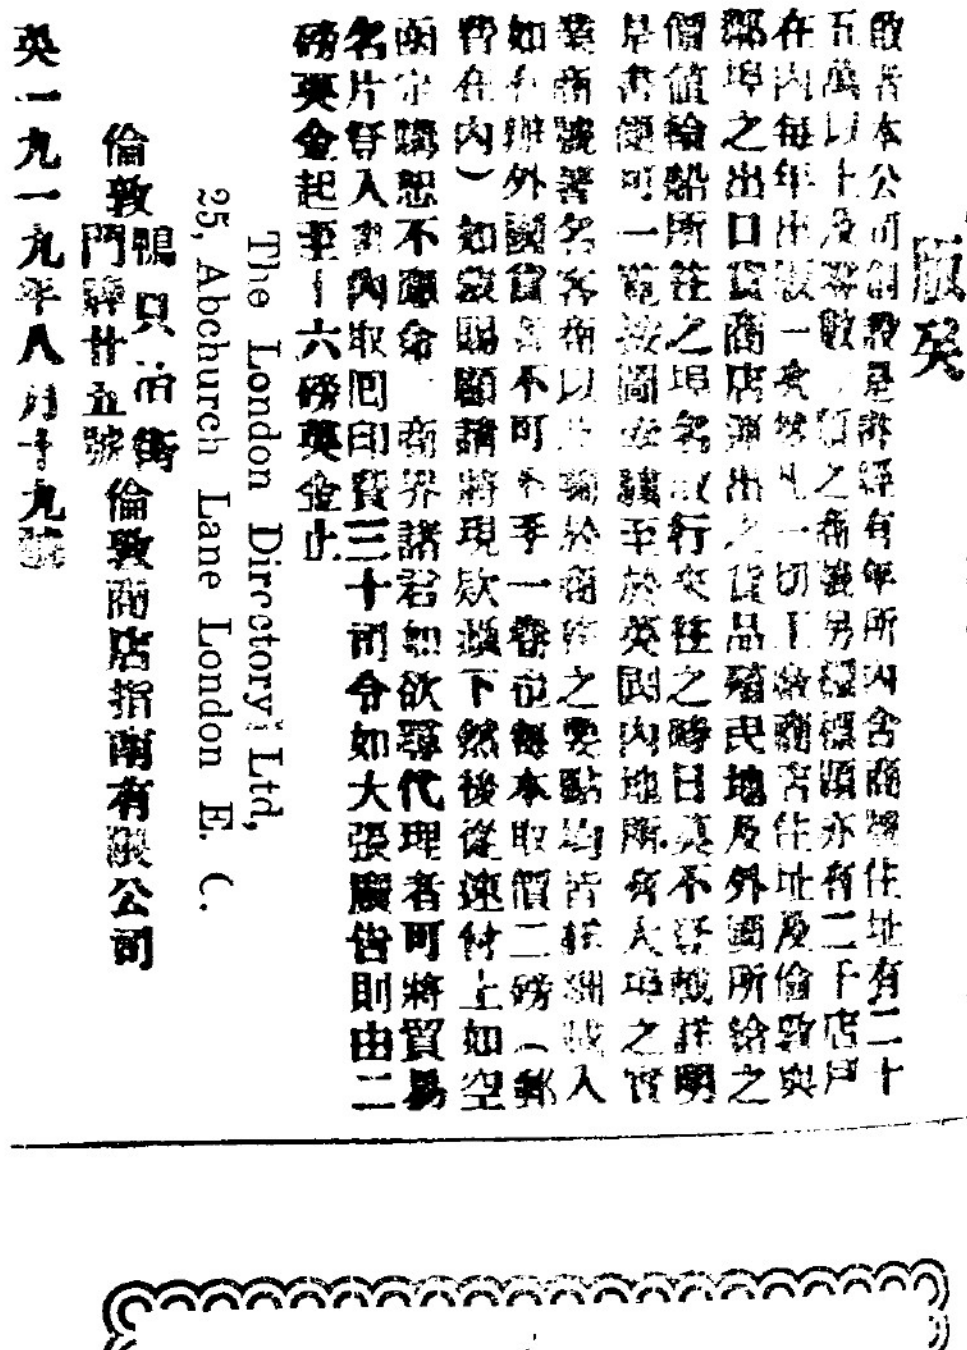 版矣
敝者本公司創設是許經有年所內含商號住址有二十
五萬以上及零數類之商號另標標頭亦有二千店戶
在內每年出版一次然凡一切工廠商店住址及倫敦與
鄰埠之出口貨商店運出之貨品殖民地及外國所給之
價值輪船所往之埠名取行來往之時日莫不登載詳明
是書便可一覽按圖安驥至於英國內地所有大埠之實
業商號著名客商以及關於商務之要點均皆詳細載入
如有辦外國貨者不可不手一卷也每本取價二磅（郵
費在內）如蒙賜顧請將現欵擲下然後從速付上如空
函定購恕不應命 商界諸君如欲尋代理者可將貿易
名片登入書內取回印費三十司令如大張廣告則由二
磅英金起至十六磅英金止
The London Directory Ltd,
25, Abchurch Lane London E. C.
倫敦鴨只治街門牌廿五號倫敦商店指南有限公司
英一九一九年八月十九號